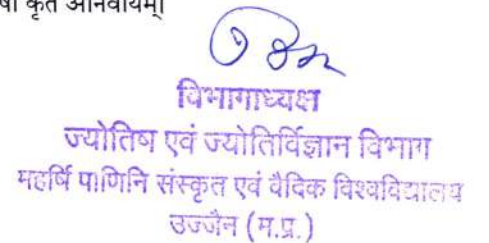 कृते अनिवार्यम्।
विभागाध्यक्ष
ज्योतिष एवं ज्योतिर्विज्ञान विभाग
महर्षि पाणिनि संस्कृत एवं वैदिक विश्वविद्यालय
उज्जैन (म.प्र.)